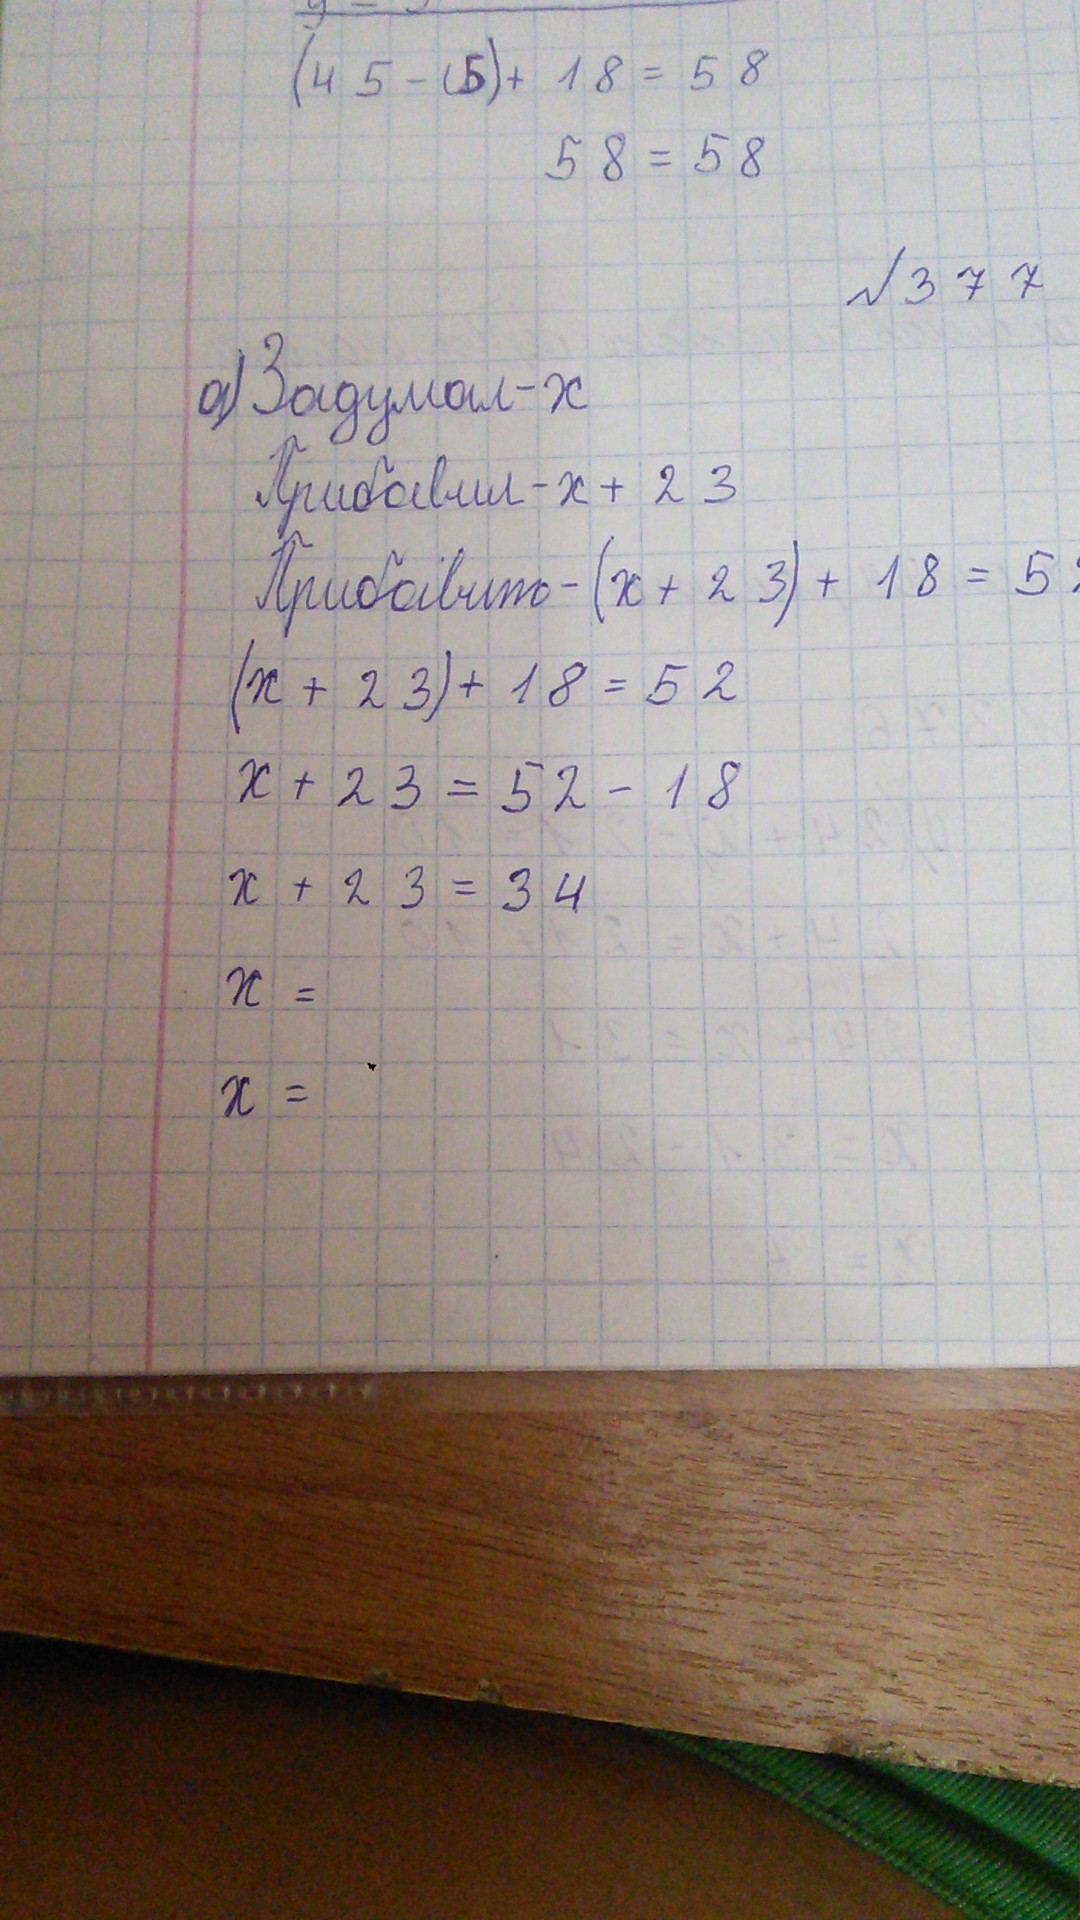 (45-(5)+ 18 = 58
58 = 58
№377
а) Задумал - х
Прибавил - х + 23
Прибавить - (х + 23) + 18 = 5
(х + 23) + 18 = 52
х + 23 = 52 - 18
х + 23 = 34
х =
х =